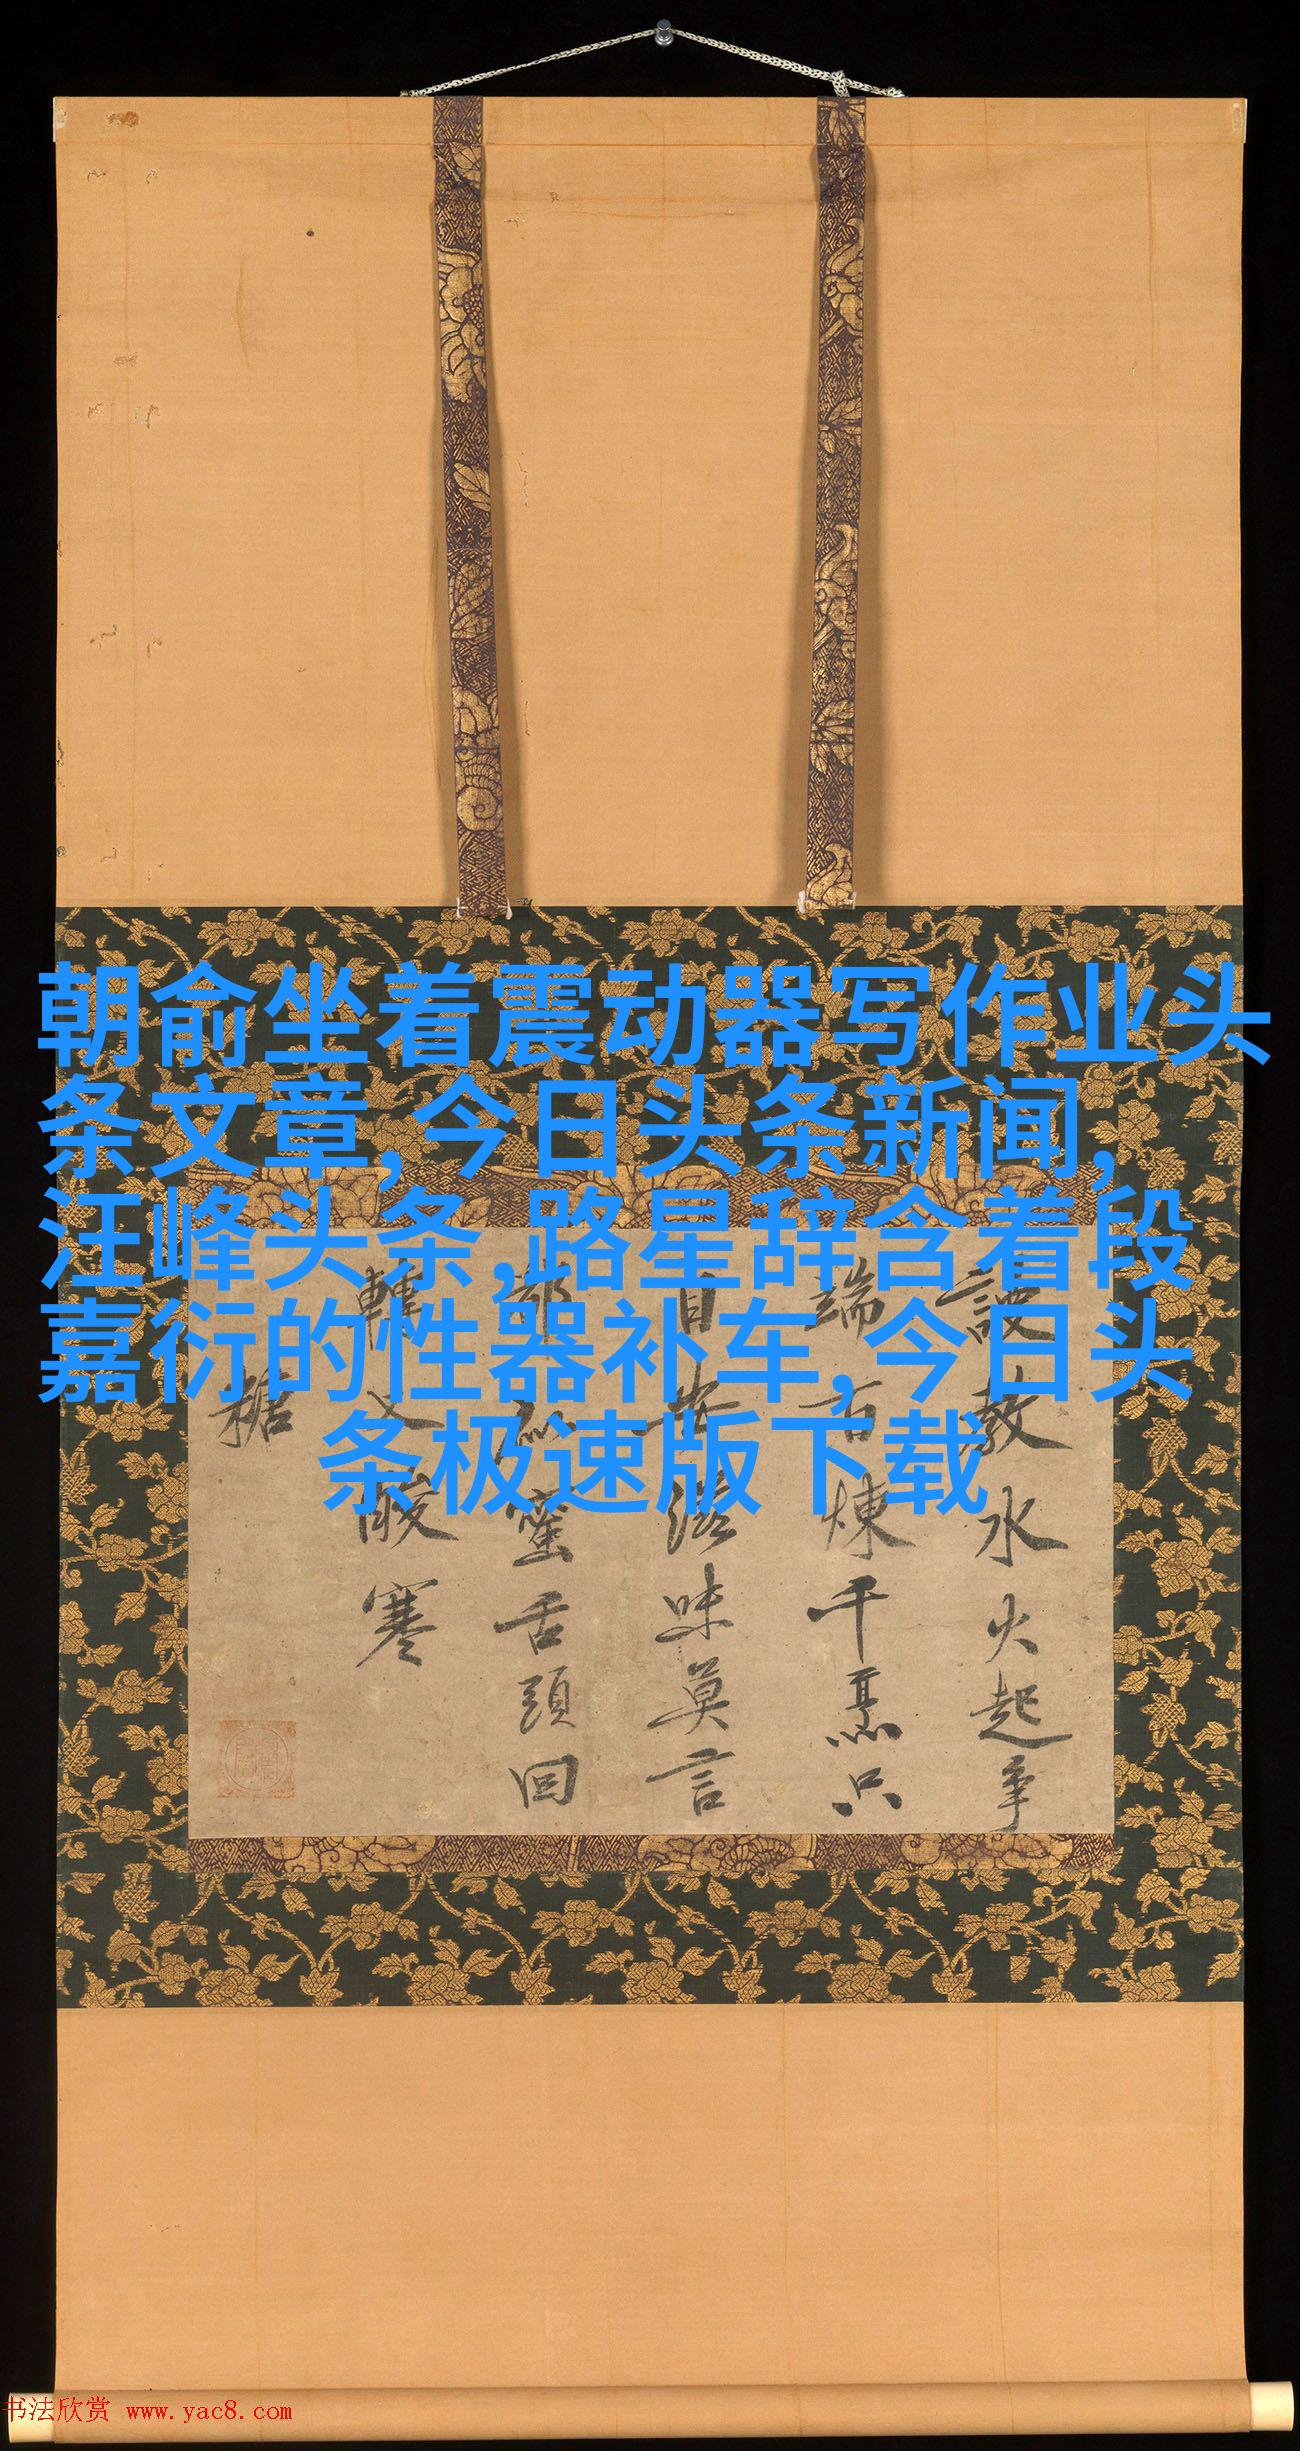 朝俞坐着震动器写作业头
条文章,今日头条新闻,
汪峰头条,路星辞含着段
嘉衍的性器补车,今日头
条极速版下载
教水火起争
端 煉千烹只
滋味莫言
蜜舌頭回
轉又酸寒
书法欣赏 www.yac8.com